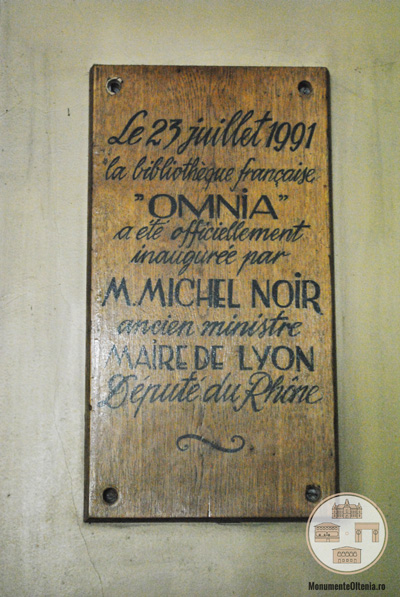 Le 23 juillet 1991
la bibliothèque française
"OMNIA"
a été officiellement
inaugurée par
M. MICHEL NOIR
ancien ministre
MAIRE DE LYON
Député du Rhône
MonumenteOltenia.ro